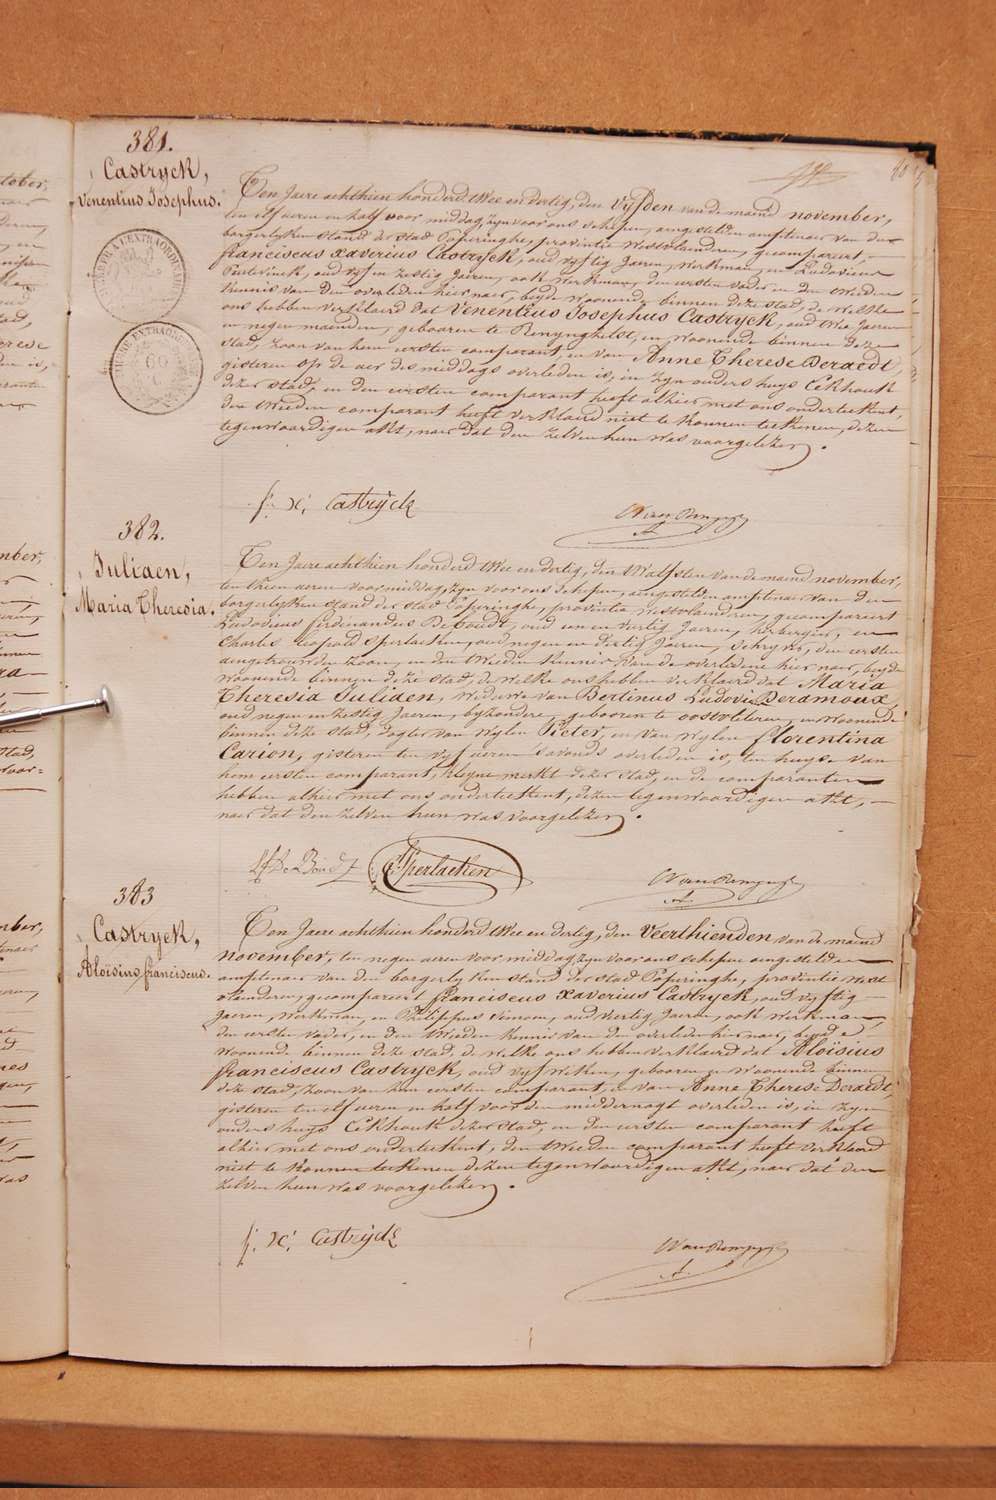 381.
Castryck,
Venentius Josephus.
Ten Jaere achthien honderd twee en dertig, den Vyfden van de maend november,
ten elf ueren en half voor middag, zyn voor ons schepen, aengestelden amptenaer van den
borgerlyken stand der stad Poperinghe, provintie Westvlanderen, gecompareert,
franciscus Xaverius Castryck, oud vyftig Jaeren, werkman, en Ludovicus
oud vyf en zestig Jaeren, ook werkman, den eersten vader en den tweeden
kennis van den overleden hier naer, beyde woonende binnen deze stad, de welke
ons hebben verklaerd dat Venentius Josephus Castryck, oud twee Jaeren
en negen maenden, gebooren te Renynghelst, en woonende binnen deze
stad, zoon van hem eersten comparant, en van Anne Therese Deraedt,
gisteren op de acr des middags overleden is, in zyn ouders huys Eekhoutt
dezer stad, en den eersten comparant heeft alhier met ons onderteekent,
den tweeden comparant heeft verklaerd niet te konnen teekenen, dezen
tegenwoordigen akt, naer dat den zelven hun was voorgelezen.
f. X. Castryck
382.
Juliaen,
Maria Theresia.
Ten Jaere achthien honderd twee en dertig, den twalfsten van de maend november,
ten thien ueren voor middag, zyn voor ons schepen, aengestelden amptenaer van den
borgerlyken stand der stad Poperinghe, provintie westvlanderen, gecompareert
Ludovicus ferdinandus De Coudt, oud een en vertig Jaeren, herbergier, en
Charles Leopold Sperlaeken, oud negen en dertig Jaeren, schryver, den eersten
aengetrouwden zoon, en den tweeden kennis van de overledene hier naer, beyde
woonende binnen deze stad, de welke ons hebben verklaerd dat Maria
Theresia Juliaen, weduwe van Bertinus Ludovic Deramoux,
oud negen en zestig Jaeren, byzondere, gebooren te oostvleteren, en woonende
binnen deze stad, dogter van wylen Pieter, en van wylen florentina
Carion, gisteren ten vyf ueren s'avonds overleden is, ten huyse van
hem eersten comparant, kleyne merkt dezer stad, en de comparanten
hebben alhier met ons onderteekent, dezen tegenwoordigen akt,
naer dat den zelven hun was voorgelezen.
Sperlaeken
383
Castryck,
Aloïsius franciscus.
Ten Jaere achthien honderd twee en dertig, den Veerthienden van de maend
november, ten negen ueren voor middag, zyn voor ons schepen aengestelden
amptenaer van den borgerlyken stand der stad Poperinghe, provintie west
vlanderen, gecompareert franciscus Xaverius Castryck, oud vyftig
Jaeren, werkman, en Philippus oud vertig Jaeren, ook werkman,
den eersten vader, en den tweeden kennis van den overleden hier naer, beyde
woonende binnen deze stad, de welke ons hebben verklaerd dat Aloïsius
franciscus Castryck, oud vyf weken, gebooren en woonende binnen
deze stad, zoon van hem eersten comparant, en van Anne Therese Deraedt,
gisteren ten elf ueren en half voor den middernagt overleden is, in zyne
ouders huys Eekhoutt dezer stad, en den eersten comparant heeft
alhier met ons onderteekent, den tweeden comparant heeft verklaerd
niet te konnen teekenen dezen tegenwoordigen akt, naer dat den
zelven hun was voorgelezen.
f. X. Castryck